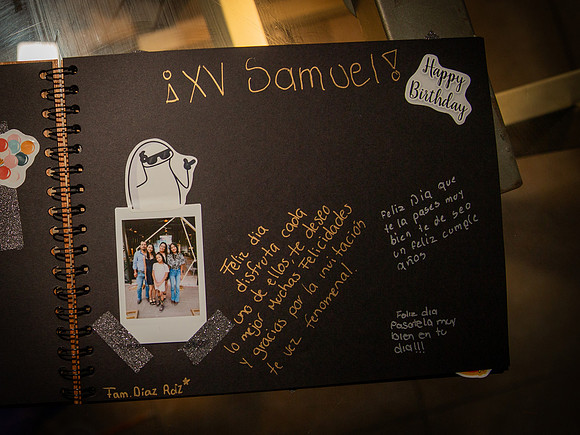 ¡XV Samuel!
Happy
Birthday
Feliz dia
disfruta cada
uno de ellos, te deseo
lo mejor Muchas Felicidades
y gracias por la invitación
te vez fenomenal.
Feliz Dia que
te la pases muy
bien te de seo
un feliz cumple
años
Feliz dia
Pasatela muy
bien en tu
dia!!!
Fam. Diaz Rdz*